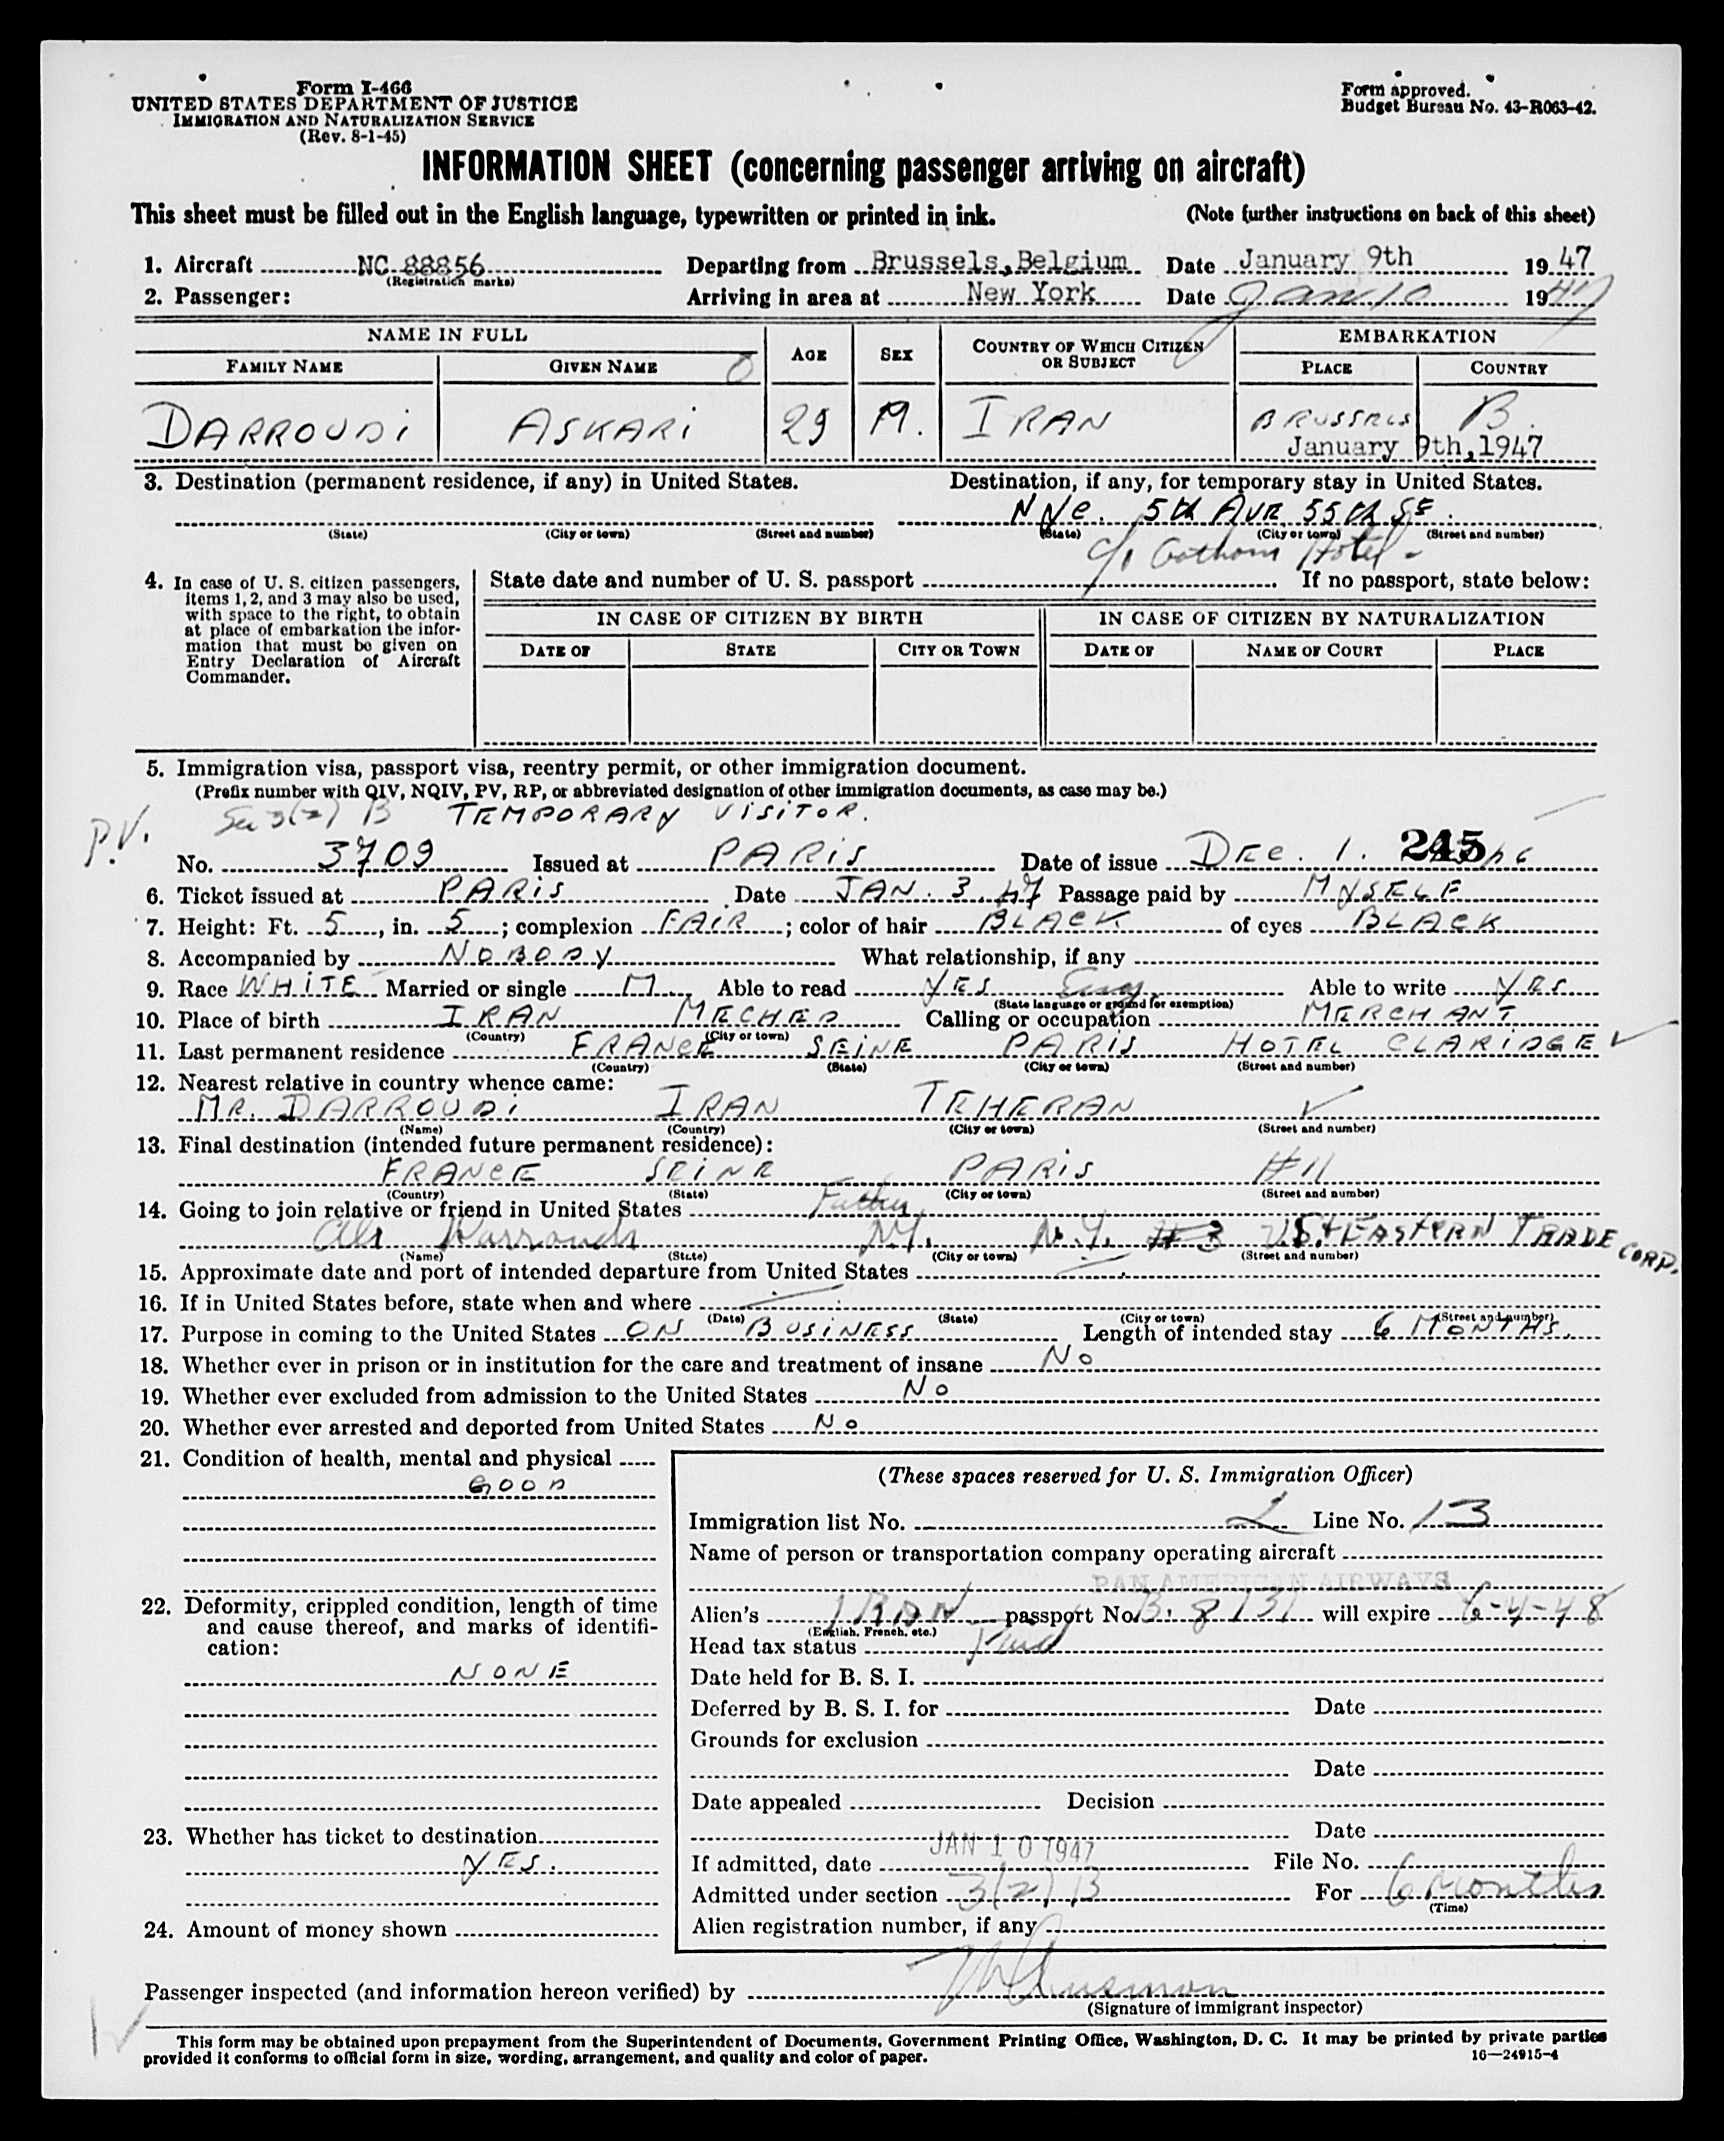 Form I-466
UNITED STATES DEPARTMENT OF JUSTICE
IMMIGRATION AND NATURALIZATION SERVICE
(Rev. 8-1-45)
Form approved.
Budget Bureau No. 43-R063-42.
INFORMATION SHEET (concerning passenger arriving on aircraft)
This sheet must be filled out in the English language, typewritten or printed in ink. (Note further instructions on back of this sheet)
1. Aircraft NC 88856 Departing from Brussels, Belgium Date January 9th 1947
(Registration marks)
2. Passenger: Arriving in area at New York Date Jan 10 1947
NAME IN FULL AGE SEX COUNTRY OF WHICH CITIZEN OR SUBJECT EMBARKATION
FAMILY NAME GIVEN NAME PLACE COUNTRY
DARROUDI ASKARI 29 M. IRAN BRUSSELS B.
January 9th, 1947
3. Destination (permanent residence, if any) in United States. Destination, if any, for temporary stay in United States.
5th AVE 55th St.
(State) (City or town) (Street and number) (State) (City or town) (Street and number)
c/o Gotham Hotel
4. In case of U. S. citizen passengers, items 1, 2, and 3 may also be used, with space to the right, to obtain at place of embarkation the information that must be given on Entry Declaration of Aircraft Commander.
State date and number of U. S. passport If no passport, state below:
IN CASE OF CITIZEN BY BIRTH IN CASE OF CITIZEN BY NATURALIZATION
DATE OF STATE CITY OR TOWN DATE OF NAME OF COURT PLACE
5. Immigration visa, passport visa, reentry permit, or other immigration document.
(Prefix number with QIV, NQIV, PV, RP, or abbreviated designation of other immigration documents, as case may be.)
P.V. Sec 3(2) B TEMPORARY VISITOR.
No. 3709 Issued at PARIS Date of issue DEC. 1. 245
6. Ticket issued at PARIS Date JAN. 3. 47 Passage paid by MYSELF
7. Height: Ft. 5, in. 5; complexion FAIR; color of hair BLACK of eyes BLACK
8. Accompanied by NOBODY What relationship, if any
9. Race WHITE Married or single M Able to read YES Eng. Able to write YES
(State language or ground for exemption)
10. Place of birth IRAN MECHED Calling or occupation MERCHANT
(Country) (City or town)
11. Last permanent residence FRANCE SEINE PARIS HOTEL CLARIDGE
(Country) (State) (City or town) (Street and number)
12. Nearest relative in country whence came:
MR. DARROUDI IRAN TEHERAN
(Name) (Country) (City or town) (Street and number)
13. Final destination (intended future permanent residence):
FRANCE SEINE PARIS #11
(Country) (State) (City or town) (Street and number)
14. Going to join relative or friend in United States Father
Ali Darroudi N.Y. N.Y. #3 US & EASTERN TRADE CORP.
(Name) (State) (City or town) (Street and number)
15. Approximate date and port of intended departure from United States
16. If in United States before, state when and where
(Date) (State) (City or town) (Street and number)
17. Purpose in coming to the United States ON BUSINESS Length of intended stay 6 MONTHS.
18. Whether ever in prison or in institution for the care and treatment of insane No
19. Whether ever excluded from admission to the United States No
20. Whether ever arrested and deported from United States No
21. Condition of health, mental and physical
GOOD
22. Deformity, crippled condition, length of time and cause thereof, and marks of identification:
NONE
23. Whether has ticket to destination
YES.
24. Amount of money shown
(These spaces reserved for U. S. Immigration Officer)
Immigration list No. 2 Line No. 13
Name of person or transportation company operating aircraft
PAN AMERICAN AIRWAYS
Alien's IRAN passport No. B. 8131 will expire 6-4-48
(English, French, etc.)
Head tax status Paid
Date held for B. S. I.
Deferred by B. S. I. for Date
Grounds for exclusion
Date
Date appealed Decision
Date
If admitted, date JAN 10 1947 File No.
Admitted under section 3(2) B For 6 months
(Time)
Alien registration number, if any
Passenger inspected (and information hereon verified) by
(Signature of immigrant inspector)
This form may be obtained upon prepayment from the Superintendent of Documents, Government Printing Office, Washington, D. C. It may be printed by private parties
provided it conforms to official form in size, wording, arrangement, and quality and color of paper. 16—24915-4